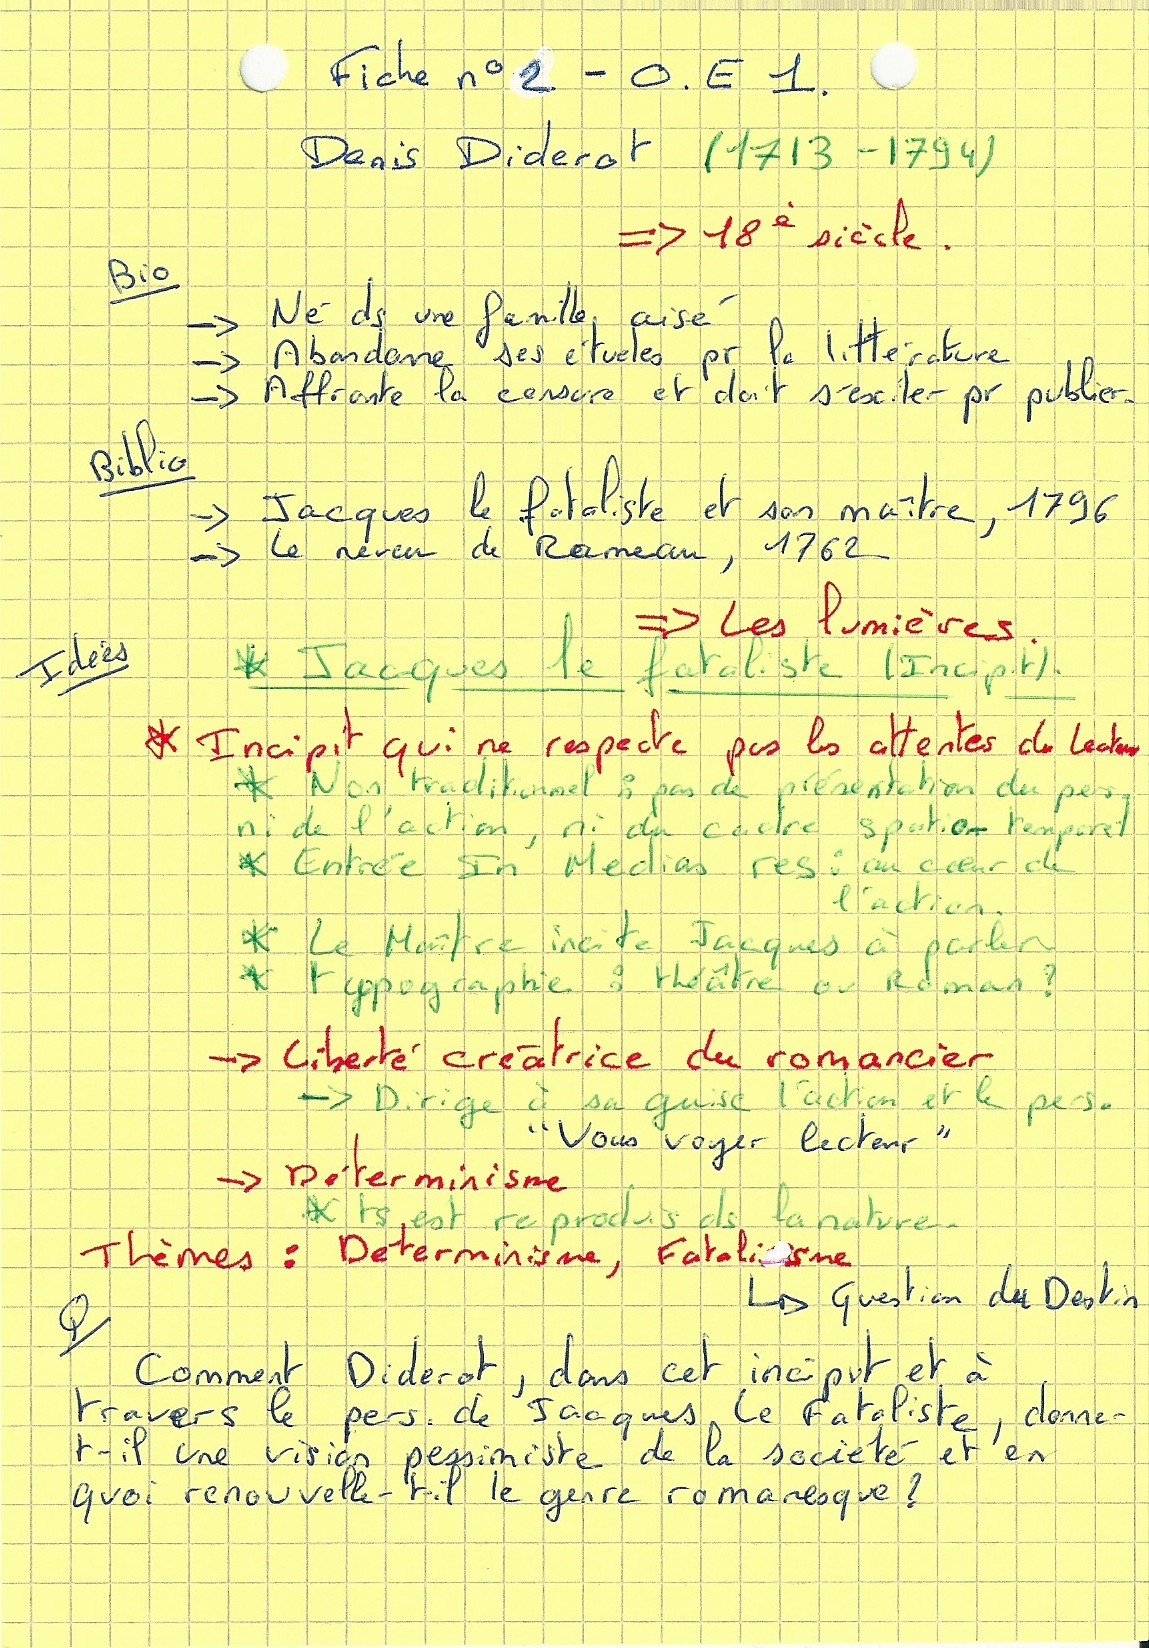 Fiche n° 2 - O.E 1.
Denis Diderot (1713-1794)
=> 18è siècle.
Bio
-> Né ds une famille aisé
-> Abandonne ses études pr la littérature
-> Affronte la censure et doit s'exiler pr publier.
Biblio
-> Jacques le fataliste et son maître, 1796
-> Le neveu de Rameau, 1762
=> Les lumières.
Idées
* Jacques le fataliste (Incipit).
* Incipit qui ne respecte pas les attentes du lecteur
* Non traditionnel : pas de présentation du pers,
ni de l'action, ni du cadre spatio-temporel
* Entrée In Medias res : au cœur de
l'action.
* Le Maître incite Jacques à parler
* typographie : théâtre ou Roman ?
-> Liberté créatrice du romancier
-> Dirige à sa guise l'action et le pers.
"Vous voyer lecteur"
-> Déterminisme
* ts est reproduis ds la nature.
Thèmes : Déterminisme, Fatalisme
↳ Question du Destin
Q/
Comment Diderot, dans cet incipit et à
travers le pers. de Jacques Le Fataliste, donne-
t-il une vision pessimiste de la société et en
quoi renouvelle-t-il le genre romanesque ?